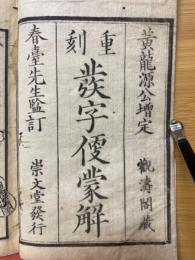 重刻
黄龍源公增定
觀濤閣蔵
發字便蒙解
春臺先生監訂
崇文堂發行